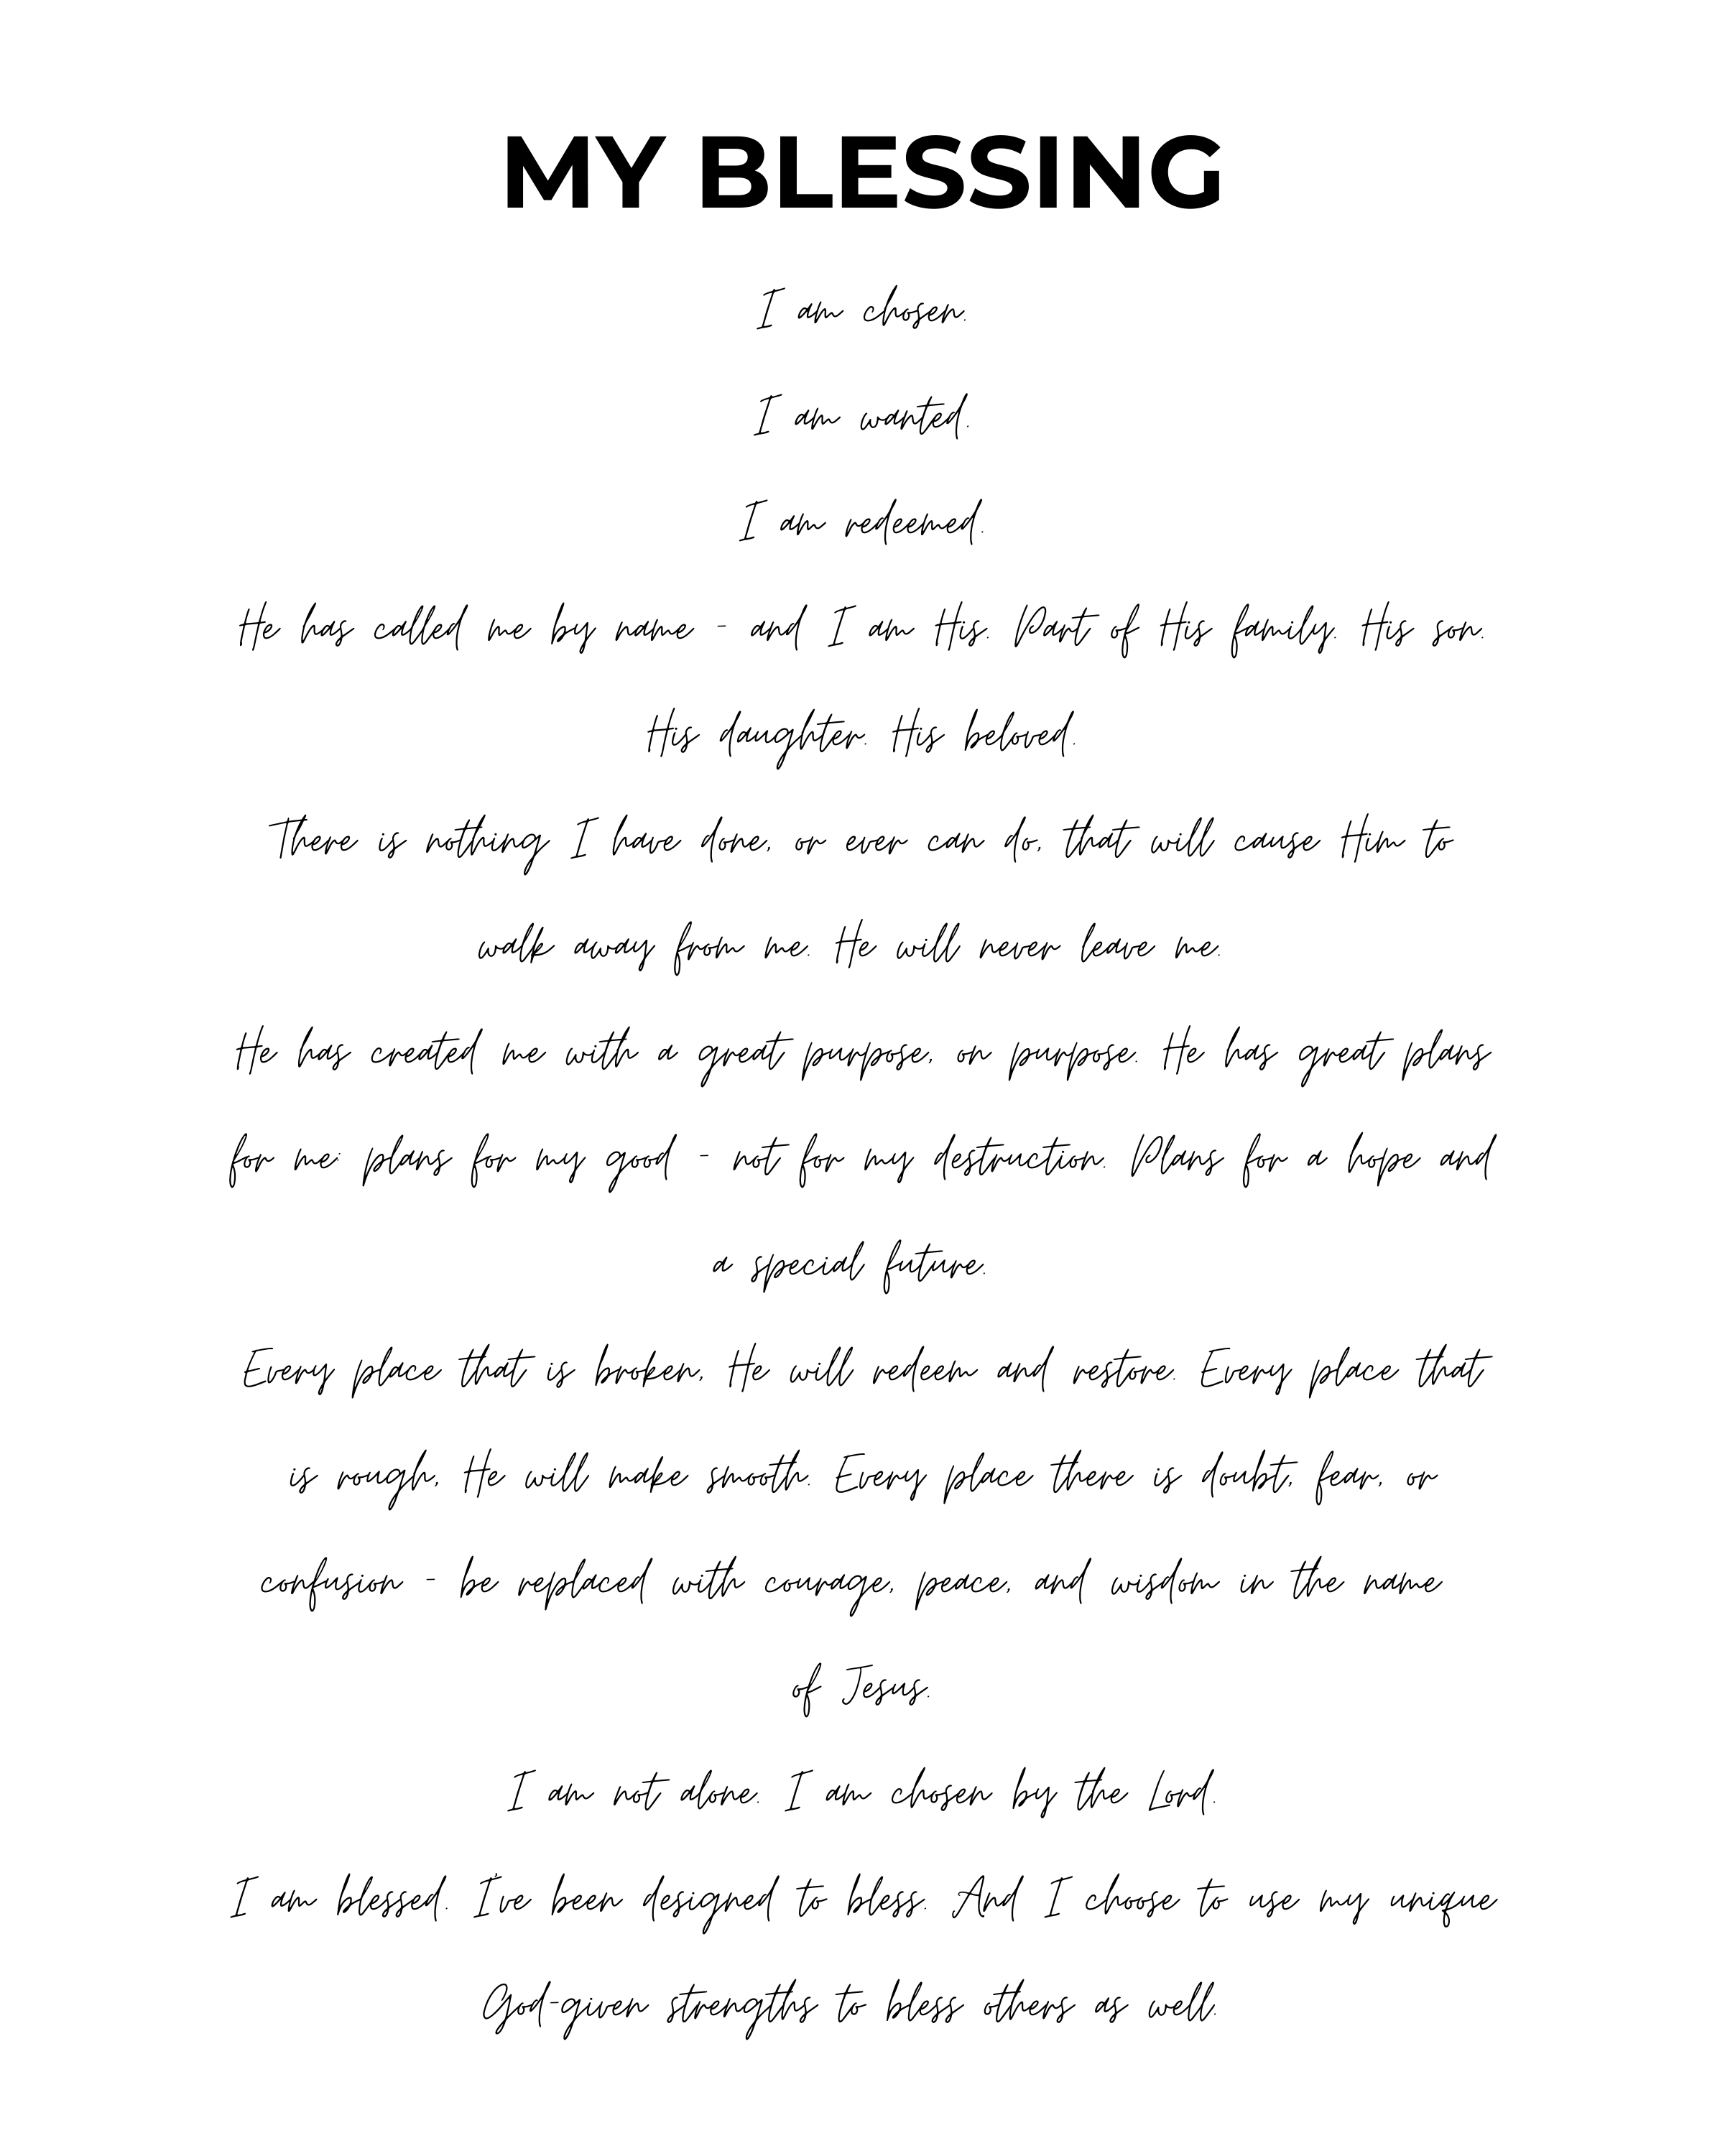 MY BLESSING
I am chosen.
I am wanted.
I am redeemed.
He has called me by name - and I am His. Part of His family. His son.
His daughter. His beloved.
There is nothing I have done, or ever can do, that will cause Him to
walk away from me. He will never leave me.
He has created me with a great purpose, on purpose. He has great plans
for me: plans for my good - not for my destruction. Plans for a hope and
a special future.
Every place that is broken, He will redeem and restore. Every place that
is rough, He will make smooth. Every place there is doubt, fear, or
confusion - be replaced with courage, peace, and wisdom in the name
of Jesus.
I am not alone. I am chosen by the Lord.
I am blessed. I've been designed to bless. And I choose to use my unique
God-given strengths to bless others as well.